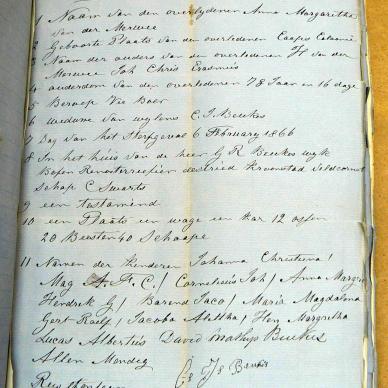 1 Naam van den overlydenen Anna Margaretha
van der Merwe
2 Geboorte Plaats van den overledenen Caapse Colonie
3 Naam der ouders van den overledenen H van der
Merwe Joh Chris Erasmus
4 ouderdom van den overledenen 78 Jaar en 16 dage
5 Beroep Vie Boer
6 weduwe van wylens C. J. Beukes
7 Dag van het Sterfgeval 6 February 1866
8 In het huis van de heer G R Beukes wyk
Bofen Renosterrefier destried Kroonstad Veldcornet
schap C Swarts
9 een testamend
10 een Plaats en wage en kar 12 ossen
20 Beesten 40 Schaape
11 Namen der Kinderen Johanna Christina /
Mag A. F. C. / Cornelius Joh / Anna Margrie
Hendrik G / Barend Jaco / Maria Magdalena
Gert Roelf / Jacoba Alettha / Hen Margretha
Lucas Albertus David Mathys Beukes
Allen Mondig